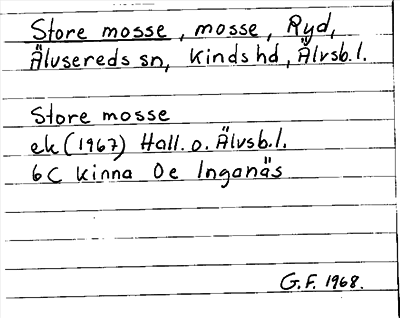 Store mosse, mosse, Ryd,
Älvsereds sn, Kinds hd, Älvsb.l.
Store mosse
ek (1967) Hall. o. Älvsb.l.
6C Kinna 0e Inganäs
G.F. 1968.